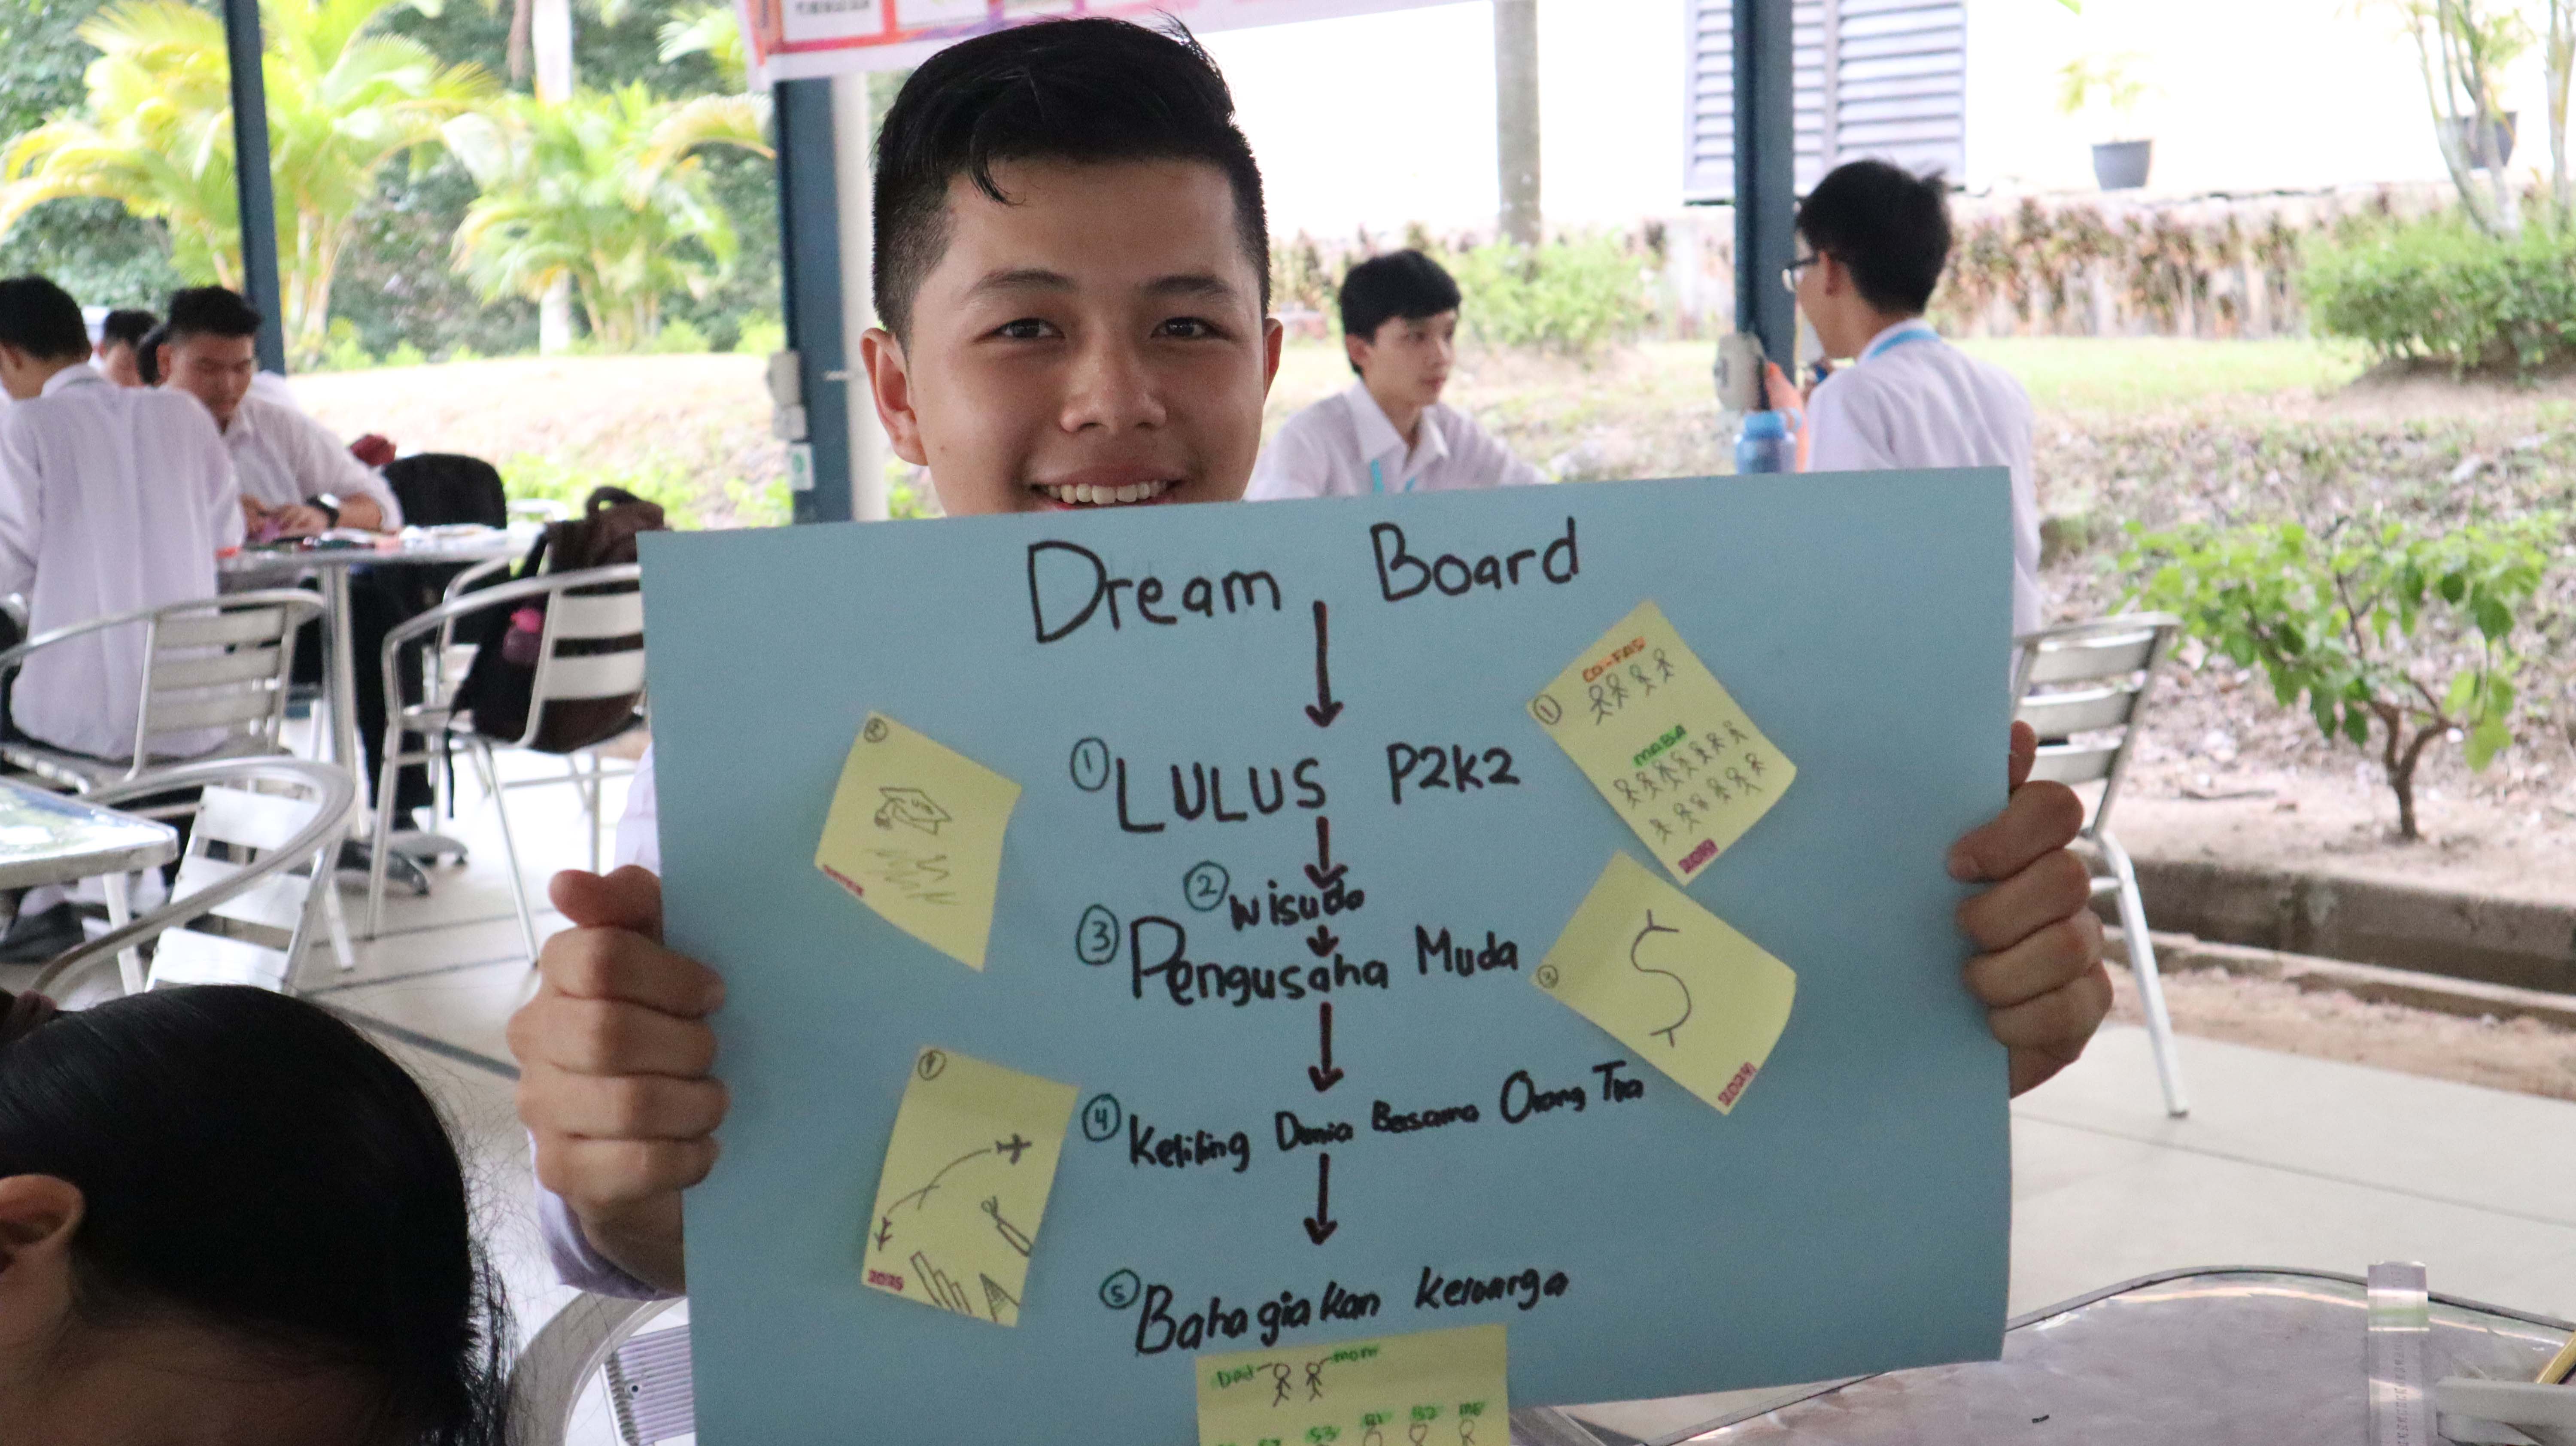 Dream Board
① LULUS P2K2
② Wisuda
③ Pengusaha Muda
④ Keliling Dunia Bersama Orang Tua
⑤ Bahagiakan Keluarga
①
CO-FAS
MABA
2019
②
③
2024
④
2025
Dad mom
S3 B1 B2 ME